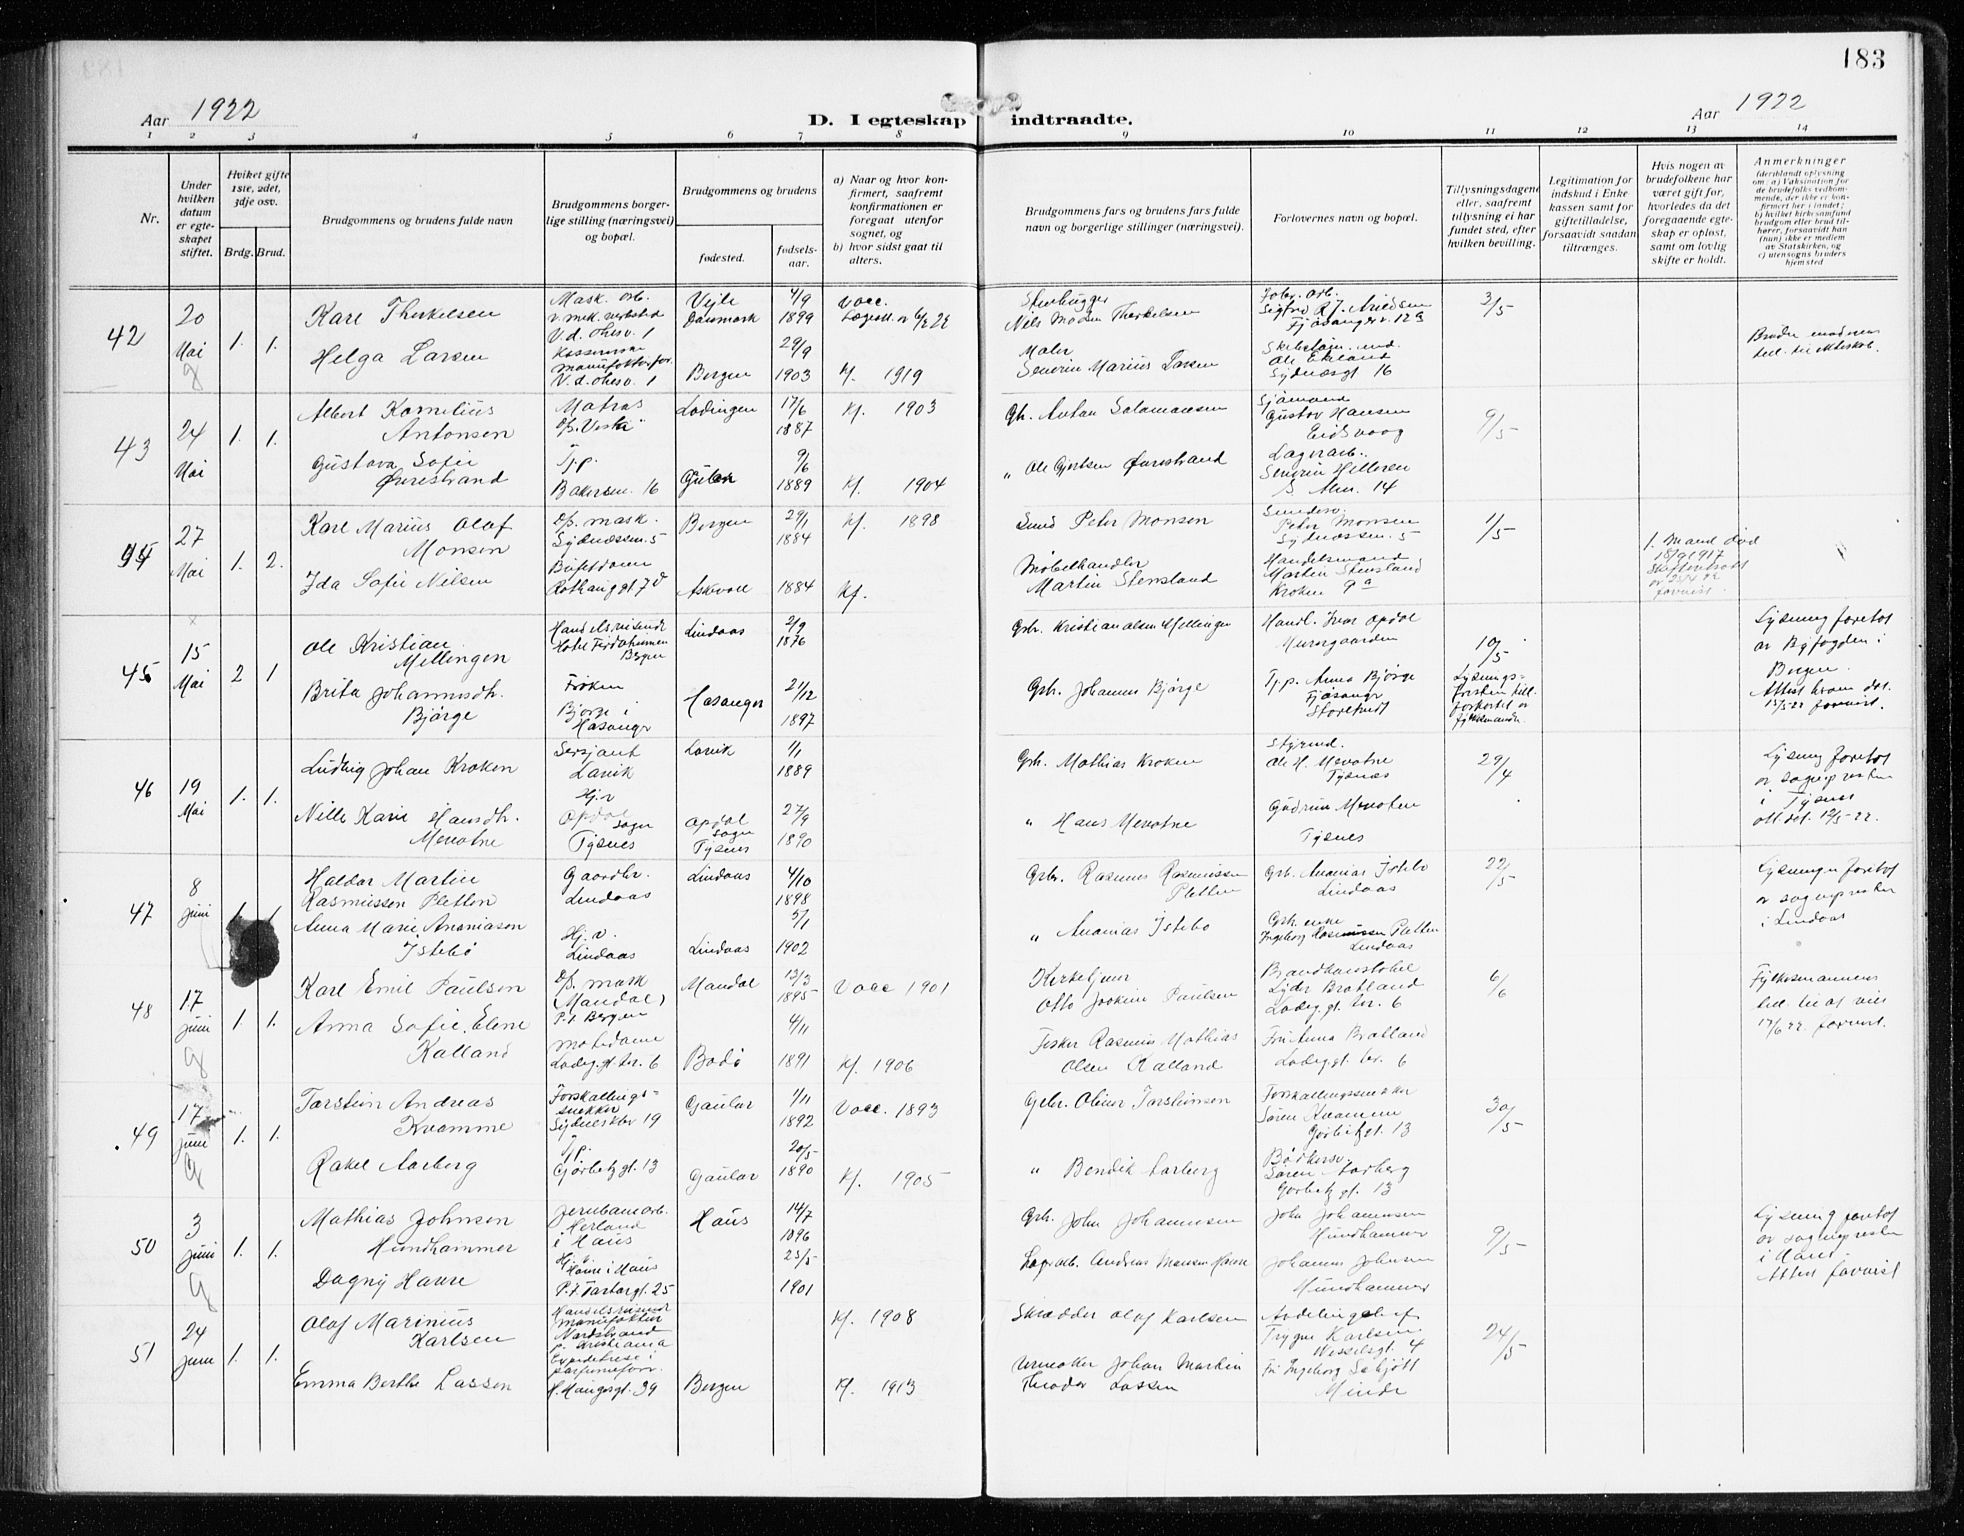 183
Aar 1922
D. I egteskap indtraadte.
Aar 1922
1 2 3 4 5 6 7 8 9 10 11 12 13 14
Nr.
Under hvilken datum er egteskapet stiftet.
Hviket gifte 1ste, 2det, 3dje osv.
Brdg. Brud.
Brudgommens og brudens fulde navn
Brudgommens borgerlige stilling (næringsvei) og bopæl.
Brudgommens og brudens
fødested.
fødselsaar.
a) Naar og hvor konfirmert, saafremt konfirmationen er foregaat utenfor sognet, og
b) hvor sidst gaat til alters.
Brudgommens fars og brudens fars fulde navn og borgerlige stillinger (næringsvei).
Forlovernes navn og bopæl.
Tillysningsdagene eller, saafremt tillysning ei har fundet sted, efter hvilken bevilling.
Legitimation for indskud i Enkekassen samt for giftetilladelse, forsaavidt saadan tiltrænges.
Hvis nogen av brudefolkene har været gift før, hvorledes da det foregaaende egteskap er opløst, samt om lovlig skifte er holdt.
Anmerkninger
(deriblandt oplysning om: a) Vaksination for de brudefolks vedkommende, der ikke er konfirmert her i landet; b) hvilket kirkesamfund brudgom eller brud tilhører, forsaavidt han (hun) ikke er medlem av Statskirken, og c) utensogns bruders hjemsted
42
20 Mai
1. 1.
Karl Therkelsen
Helga Larsen
Mask. arb.
V.d. ohesv. 1
V.d. ohesv. 1
Vejle
Danmark
4/9 1899
29/9 1903
Bergen
Vacc.
Kf. 1919
Stenhugger
Nils Madsen Therkelsen
Maler
Severin Marius Larsen
Fjøsangerv. 129
Ole Ekeland
Sydnæsgt 16
3/5
43
24 Mai
1. 1.
Albert Kornelius
Antonsen
Gustava Sofie
Øvrestrand
Matros
D/s. Vesta
Tj.p.
Bakersm. 16
Lødingen
Gulen
17/6 1887
9/6 1889
Kf. 1903
Kf. 1904
Gb. Anton Salamonsen
" Ole Gjertsen Øvrestrand
Sjømand
Gustav Hansen
Eidsvaag
Lagerarb.
Severin Helleren
S. Alm. 14
9/5
44
27 Mai
1. 2.
Karl Marius Olaf
Monsen
Ida Sofie Nilsen
D/s. mask.
Sydnæssm. 5
Bufetdame
Bergen
Askvoll
29/1 1884
1884
Kf. 1898
Kf.
Peter Monsen
Møbelhandler
Martin Stensland
Peter Monsen
Sydnæssm. 5
Handelsmand
Martin Stensland
Kroken 9a
1/5
1. Mand død
18/9 1917
45
15 Mai
2 1
Ole Kristian
Mellingen
Brita Johannesdtr.
Bjørge
Handelsreisende
Bergen
Frøken
Bjørge i
Hosanger
Lindaas
Hosanger
2/9 1876
21/12 1897
Grb. Kristian Olsen Mellingen
Grb. Johannes Bjørge
Handl. Ivar Opdal
Murergaarden
Tj.p. Anna Bjørge
Fjøsanger
10/5
Lysnings-
fristen till.
forkortet av
fylkesmanden.
Lysning foretat
av Byfogden i
Bergen.
46
19 Mai
1. 1.
Ludvig Johan Kroken
Nille Karie Hansdtr.
Mevatne
Sersjant
Lavik
Hj.v
Opdal
Sogn
Tysnes
Lavik
Opdal
Sogn
Tysnes
1/1 1889
27/9 1890
Grb. Mathias Kroken
" Hans Mevatne
Styrmd.
Ole H. Mevatne
Tysnæs
Gudrun Mevatne
Tysnes
29/4
Lysning foretat
av sognepresten
i Tysnes
att. dat. 19/5-22.
47
8 juni
1. 1.
Haldor Martin
Rasmussen Pletten
Anna Marie Ananiasen
Istebø
Gaardbr.
Lindaas
Hj.v.
Lindaas
Lindaas
Lindaas
4/10 1898
5/1 1902
Grb. Rasmus Rasmussen
Pletten
" Ananias Istebø
Grb. Ananias Istebø
Lindaas
Grb. enke
Ingeborg Rasmussen Pletten
Lindaas
22/5
Lysning foretat
av sognepresten
i Lindaas
48
17 juni
1. 1.
Karl Emil Paulsen
Anna Sofie Elene
Kalland
D/s. mask
(Mandal)
P.t. Bergen
Motedame
Ladeg.gt. ter. 6
Mandal
Bodø
13/3 1895
4/11 1891
Vacc 1901
Kf. 1906
Kirketjener
Otto Joakim Paulsen
Fisker Rasmus Mathias
Olsen Kalland
Lyder Bratland
Ladeg.gt. ter. 6
Fru Anna Bratland
Ladeg.gt. ter. 6
6/6
Fylkesmannens
17/6 22. forevist.
49
17 juni
1. 1.
Torstein Andreas
Kvamme
Rakel Aarberg
Forskallings-
snekker
Sydneskl. 19
Tjp.
Gørbitzgt. 13
Gaular
Gaular
1/11 1892
20/5 1890
Vacc. 1893
Kf. 1905
Gbr. Oliver Torsteinsen
" Bendik Aarberg
Forskallingssnekker
Søren Kvamme
Gørbitzgt. 13
Bødkersv.
Søren Aarberg
Gørbitzgt. 13
30/5
50
3 juni
1. 1.
Mathias Johnsen
Hundhammer
Dagny Haure
Jernbanearb.
Herland
i Haus
Haus
14/7 1896
25/5 1901
Grb. John Johannesen
Andreas Monsen Haure
John Johannesen
Hundhammer
Johannes Johnsen
Hundhammer
9/5
Lysning foretat
av sognepresten
i Haus.
Attest forevist
51
24 juni
1. 1.
Olaf Marinius
Karlsen
Emma Berthe Lassen
Handelsreisende
manufaktur
Nordstrand
p. Kristiania
Expeditrise i
parfumeforr.
H. Haugesgt. 39
Bergen
Kf. 1908
Kf. 1913
Skrædder Olaf Karlsen
Urmaker Johan Martin
Theodor Lassen
Avdelingschef
Trygve Karlsen
Wesselsgt. 4
Fr. Ingeborg Schjøtt
Minde
24/5